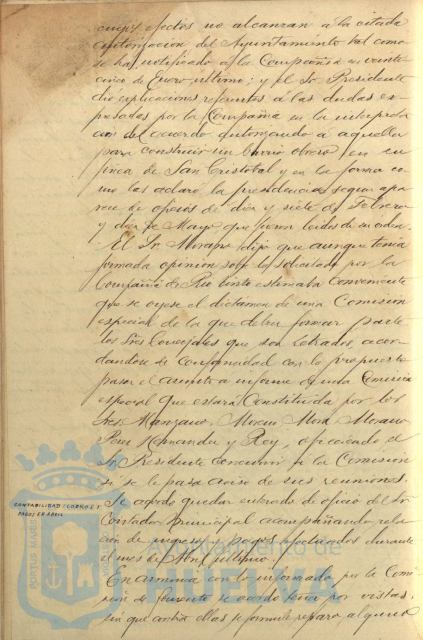 cuyos efectos no alcanzan á la citada
autorizacion del Ayuntamiento tal como
se ha notificado á la Compañia en veinte
cinco de Enero último; y el Sr. Presidente
dió esplicaciones referentes á las dudas ex-
presadas por la Compañia en la interpreta
cion del acuerdo autorizando á aquella
para construir un barrio obrero en su
finca de San Cristobal y en la forma co-
mo las aclaró la presidencia segun apa
rece de oficios de diez y siete de Febrero
y diez de Mayo que fueron leidos de su orden.
El Sr. Morano dijo que aunque tenia
formada opinión sobre lo solicitado por la
Compañia de Rio Tinto estimaba conveniente
que se oyese el dictámen de una Comision
especial de la que deben formar parte
los Sres Concejales que son Letrados, acor
dandose de conformidad con lo propuesto
pasar el asunto á informe de una Comision
especial que estará constituida por los
Sres. Manzano, Moreno Mora, Morano
Perez Hernandez y Rey, ofreciendo el
Sr. Presidente concurrir á la Comision
si se le pasa aviso de sus reuniones.
CONTABILIDAD: COBROS Y
PAGOS EN ABRIL
Se acordó quedar enterado de oficio del Sr
Contador municipal acompañando rela
cion de ingresos y pagos efectuados durante
el mes de Abril último.
En armonia con lo informado por la Comi
sion de fomento se acordó tener por vistas
sin que contra ellas se formule reparo alguno
PORTUS MARIS
Ayuntamiento de